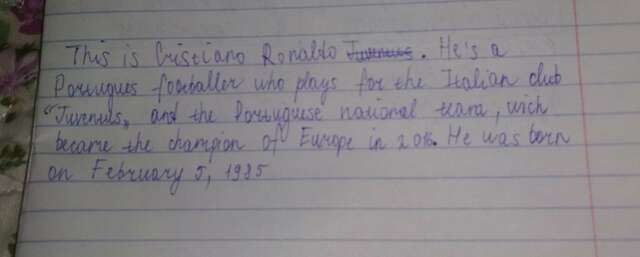 This is Cristiano Ronaldo Juventus. He's a
Portugues footballer who plays for the Italian club
“Juventus„ and the Portuguese national team, wich
became the champion of Europe in 2016. He was born
on February 5, 1985